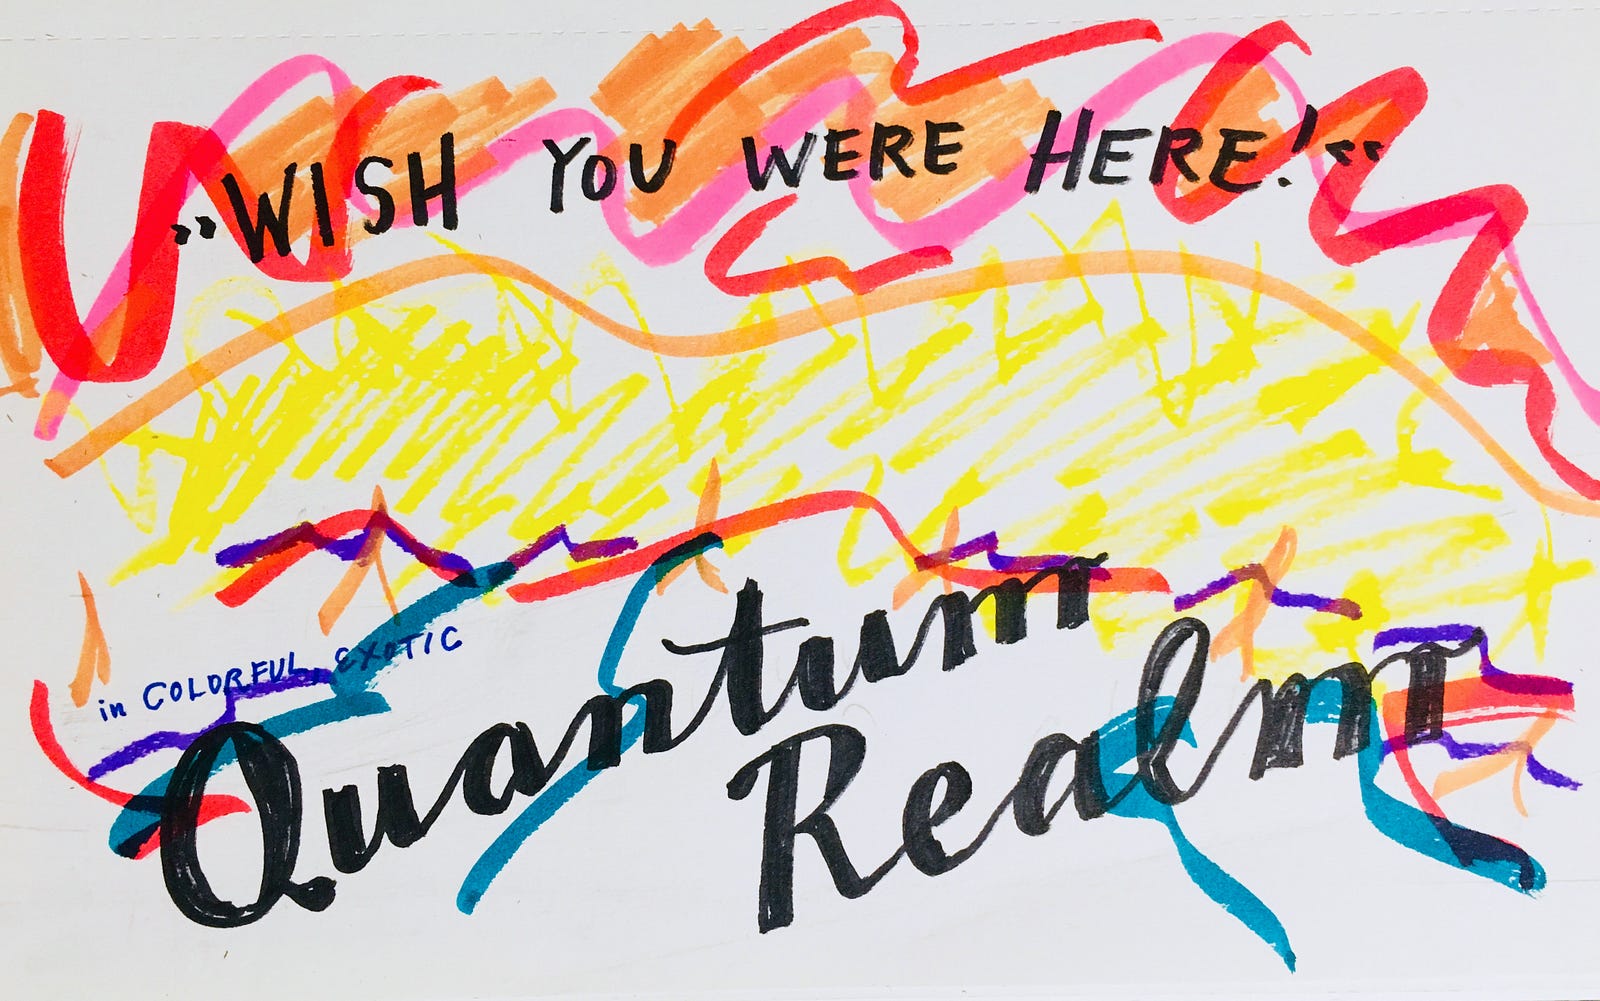 »WISH YOU WERE HERE!«
in COLORFUL, EXOTIC
Quantum
Realm